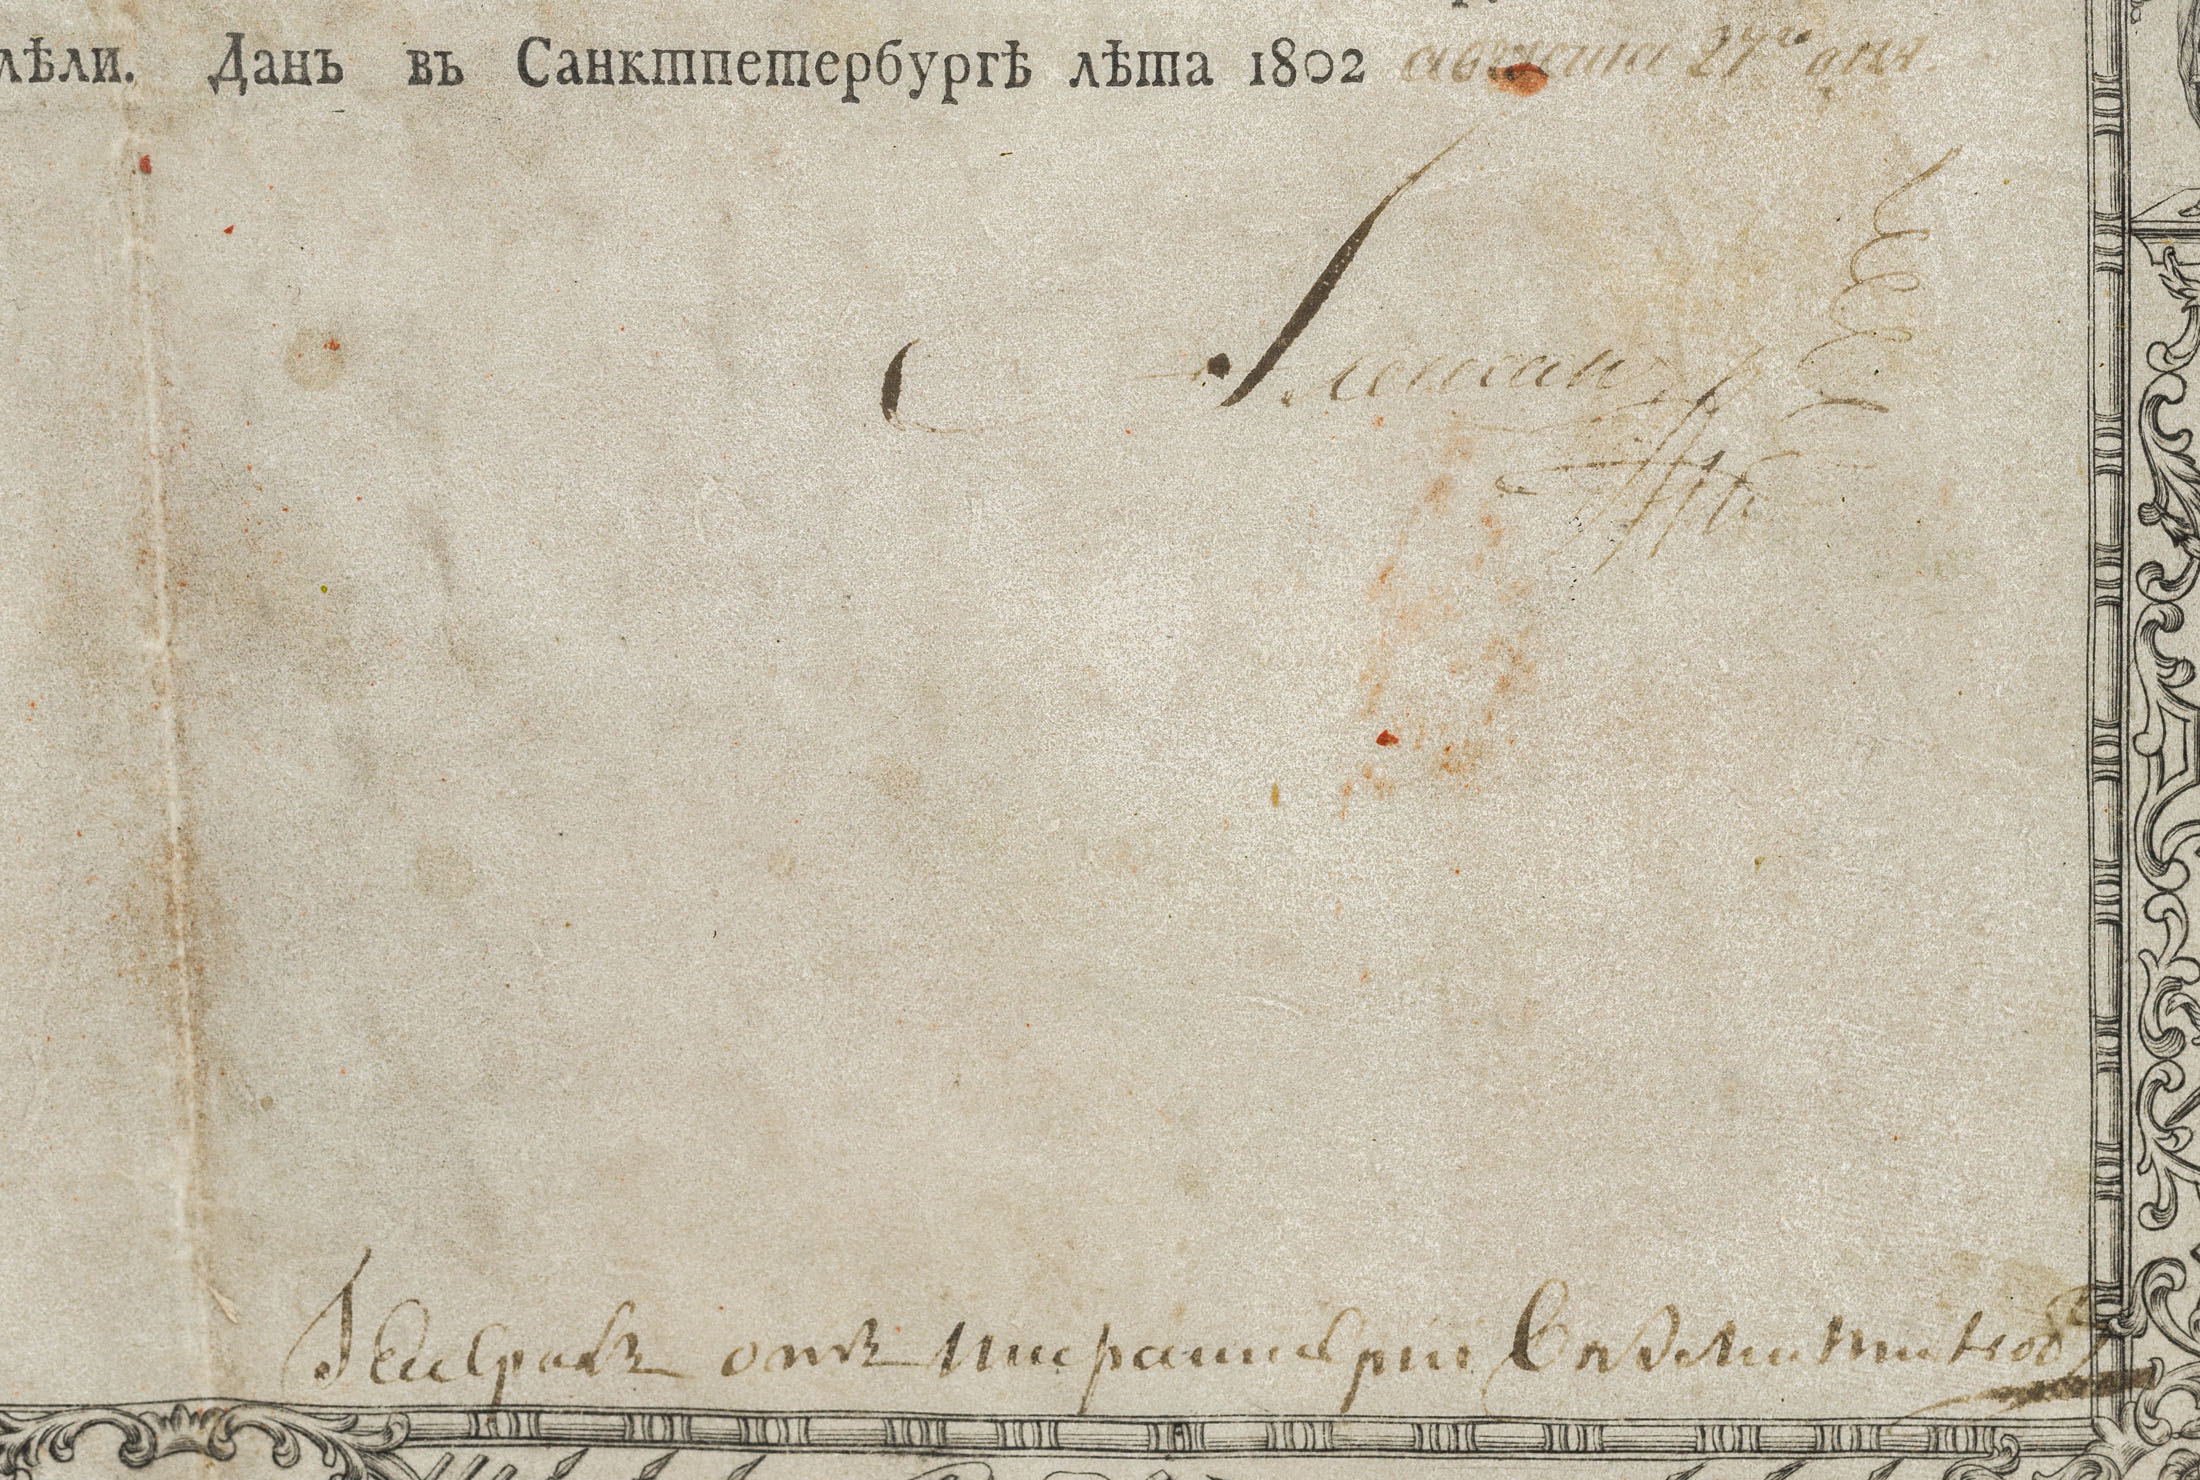 лѣли. Данъ въ Санктпетербургѣ лѣта 1802 августа 27го дня.
Александръ
Генералъ отъ Инфантеріи Вязмитиновъ